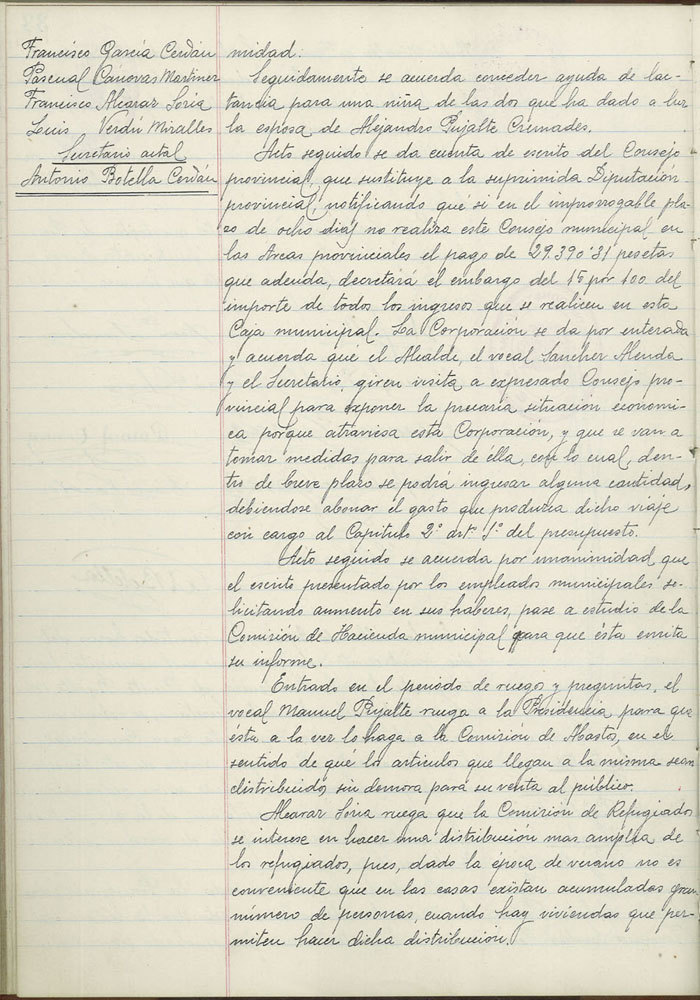 Francisco García Cerdán
Pascual Cánovas Martinez
Francisco Alcaraz Soria
Luis Verdú Miralles
Secretario actal
Antonio Botella Cerdán
midad.
Seguidamente se acuerda conceder ayuda de lac-
tancia para una niña de las dos que ha dado a luz
la esposa de Alejandro Pujalte Cremades.
Acto seguido se da cuenta de escrito del Consejo
provincial, que sustituye a la suprimida Diputación
provincial, notificando que si en el improrrogable pla-
zo de ocho dias no realiza este Consejo municipal en
las Arcas provinciales el pago de 29.390'31 pesetas
que adeuda, decretará el embargo del 15 por 100 del
importe de todos los ingresos que se realicen en esta
Caja municipal. La Corporación se da por enterada
y acuerda que el Alcalde, el vocal Sanchez Alenda
y el Secretario, giren visita a expresado Consejo pro-
vincial para exponer la precaria situación economi-
ca porque atraviesa esta Corporación, y que se van a
tomar medidas para salir de élla, con lo cual, den-
tro de breve plazo se podrá ingresar alguna cantidad,
debiendose abonar el gasto que produzca dicho viaje
con cargo al Capitulo 2º artº 1º del presupuesto.
Acto seguido se acuerda por unanimidad que
el escrito presentado por los empleados municipales so-
licitando aumento en sus haberes, pase a estudio de la
Comisión de Hacienda municipal para que ésta emita
su informe.
Entrado en el periodo de ruegos y preguntas, el
vocal Manuel Pujalte ruega a la Presidencia para que
ésta a la vez lo haga a la Comisión de Abastos, en el
sentido de que los articulos que llegan a la misma sean
distribuidos sin demora para su venta al público.
Alcaraz Soria ruega que la Comisión de Refugiados
se interese en hacer una distribución mas amplia de
los refugiados, pues, dado la época de verano no es
conveniente que en las casas existan acumuladas gran
número de personas, cuando hay viviendas que per-
miten hacer dicha distribución.